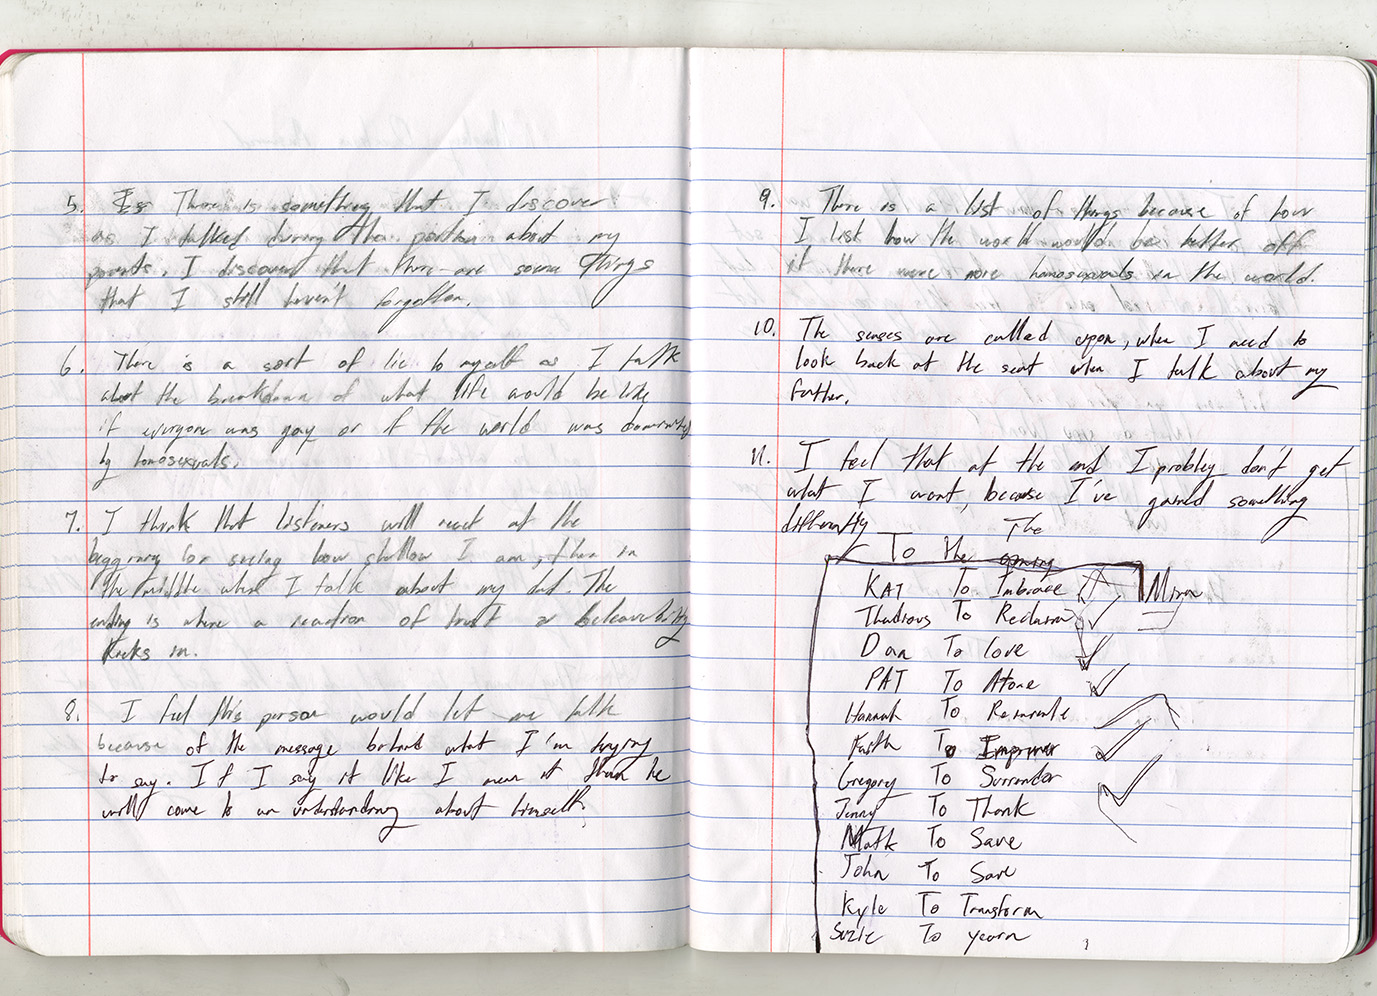 5. Is There is something that I discover
as I talked during the portion about my
parents. I discovered that there are some things
that I still haven't forgotten.
6. There is a sort of lie to myself as I talk
about the breakdown of what life would be like
if everyone was gay or if the world was dominated
by homosexuals.
7. I think that listeners will react at the
beggining for seeing how shallow I am, then in
the middle when I talk about my dad. The
ending is where a reaction of trust or
kicks in.
8. I feel this person would let me talk
because of the message behind what I'm trying
to say. If I say it like I mean it then he
will come to an understanding about himself.
9. There is a list of things because of how
I list how the world would be better off
if there were more homosexuals in the world.
10. The senses are called upon, when I need to
look back at the seat when I talk about my
father.
11. I feel that at the end I probley don't get
what I want, because I've gained something
differently
The
To the opening
KAT To Imbrace
Mirna
Thadious To Reclaim
Dan To love
PAT To Atone
Hannah To
Faith To
Gregory To Surrender
Jenny To Thank
Matk To Save
John To Save
Kyle To Transform
Suzie To yearn